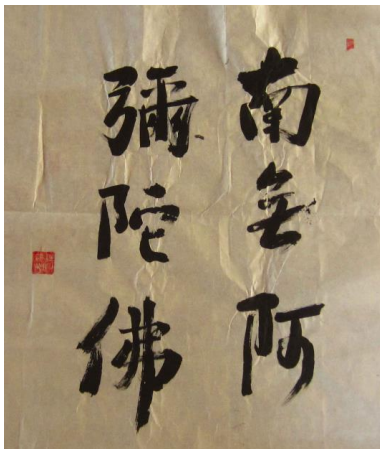 南无阿
彌陀佛